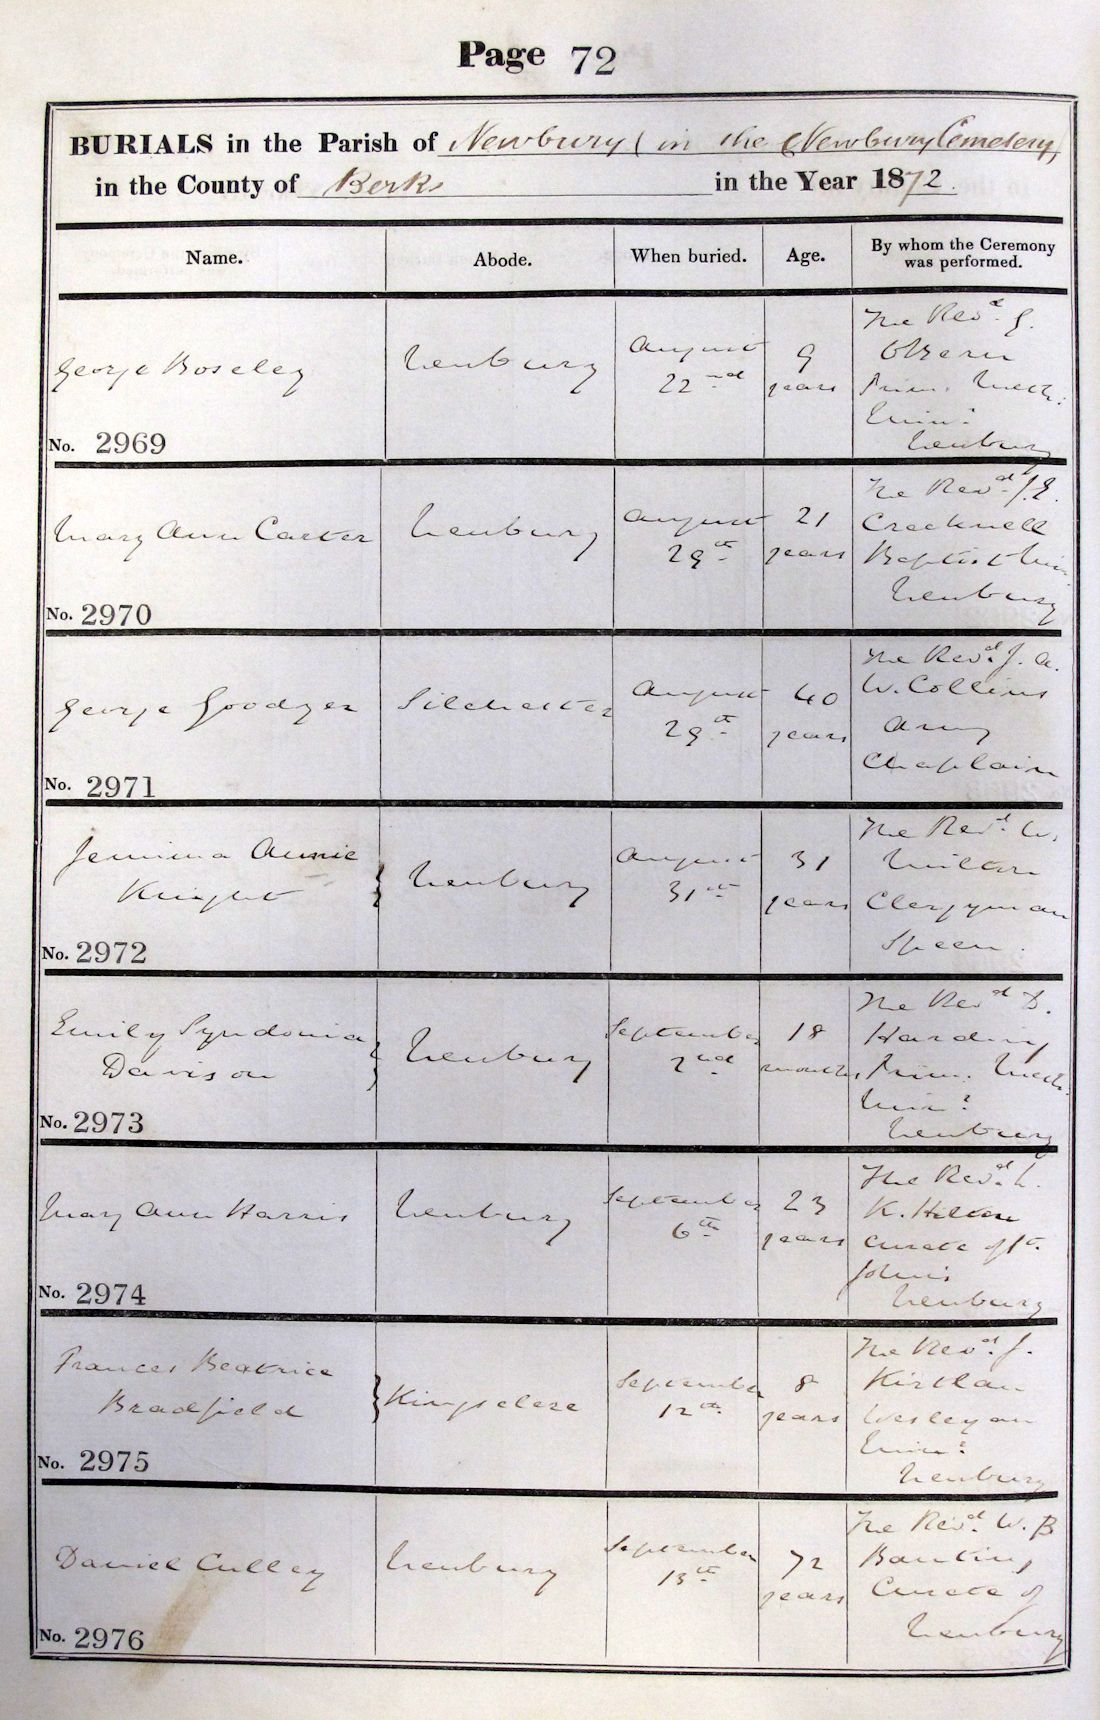 Page 72
BURIALS in the Parish of Newbury (in the Newbury Cemetery)
in the County of Berks in the Year 1872.
Name. Abode. When buried. Age. By whom the Ceremony was performed.
George Boseley
Newbury
August
22nd
9
years
The Revd. J.
Prim. Meth:
Minr:
Newbury
No. 2969
Mary Ann Carter
Newbury
August
29th
21
years
The Revd. J. E.
Cracknell
Baptist Min
Newbury
No. 2970
George Goodyer
Silchester
August
29th
40
years
The Revd. J. A.
W. Collins
Army
Chaplain
No. 2971
Jemima Annie
Knight
Newbury
August
31st
31
years
The Revd. W.
Milton
Clergyman
Speen.
No. 2972
Emily Syndonia
Davison
Newbury
September
2nd
18
months
The Revd. D.
Harding
Prim. Meth.
Minr:
Newbury
No. 2973
Mary Ann Harris
Newbury
September
6th
23
years
The Revd. L.
K. Hilton
Curate of St.
John's
Newbury
No. 2974
Frances Beatrice
Bradfield
Kingsclere
September
12th
8
years
The Revd. J.
Kirtlan
Wesleyan
Minr:
Newbury
No. 2975
Daniel Culley
Newbury
September
13th
72
years
The Revd. W. B
Banting
Curate of
Newbury
No. 2976